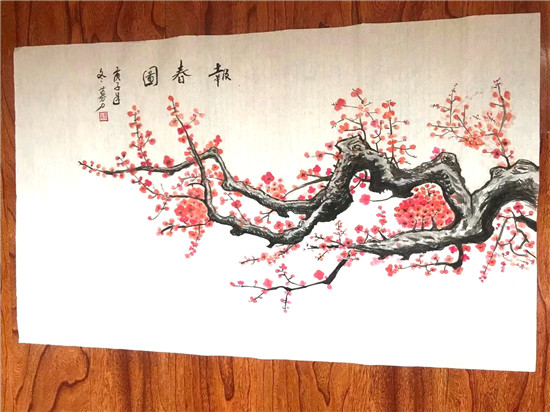 報春圖
庚子年
冬